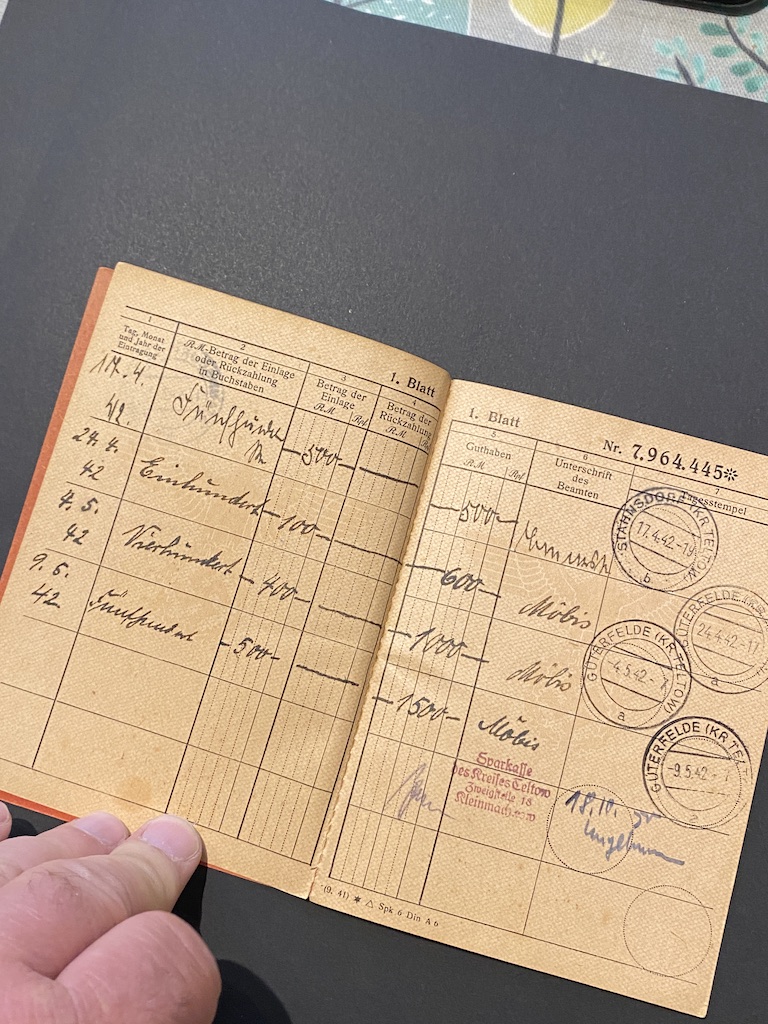 1
Tag, Monat
und Jahr der
Eintragung
2
RM-Betrag der Einlage
oder Rückzahlung
in Buchstaben
3
Betrag der
Einlage
RM Rpf
1. Blatt
4
Betrag der
Rückzahlung
RM Rpf
17. 4.
42.
Fünfhundert
-500-
24. 4.
42
Einhundert
-100-
4. 5.
42
Vierhundert
-400-
9. 5.
42
Fünfhundert
-500-
1. Blatt
Nr. 7.964.445*
5
Guthaben
RM Rpf
6
Unterschrift
des
Beamten
7
Tagesstempel
-500-
STAHNSDORF (KR TELTOW)
17.4.42-19
b
-600-
Möbis
GÜTERFELDE (KR TELTOW)
24.4.42-17
a
-1000-
Möbis
GÜTERFELDE (KR TELTOW)
-4.5.42-7
a
-1500-
Möbis
GÜTERFELDE (KR TELTOW)
-9.5.42-7
a
Sparkasse
des Kreises Teltow
Zweigstelle 18
Kleinmachnow
18. 10.
(9. 41) ✶ △ Spk 6 Din A 6